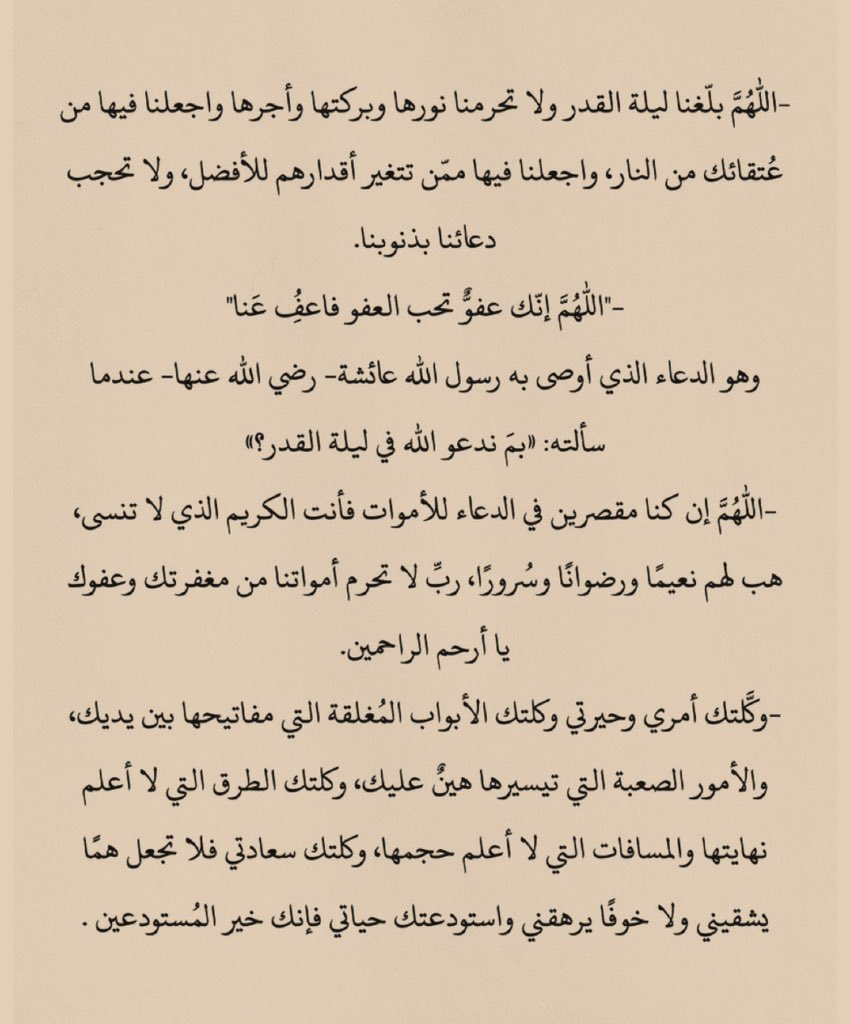 -اللَّهُمَّ بلّغنا ليلة القدر ولا تحرمنا نورها وبركتها وأجرها واجعلنا فيها من
عُتقائك من النار، واجعلنا فيها ممّن تتغير أقدارهم للأفضل، ولا تحجب
دعائنا بذنوبنا.
-"اللَّهُمَّ إنّك عفوٌّ تحب العفو فاعفُِ عَنا"
وهو الدعاء الذي أوصى به رسول الله عائشة- رضي الله عنها- عندما
سألته: «بمَ ندعو الله في ليلة القدر؟»
-اللَّهُمَّ إن كنا مقصرين في الدعاء للأموات فأنت الكريم الذي لا تنسى،
هب لهم نعيمًا ورضوانًا وسُرورًا، ربِّ لا تحرم أمواتنا من مغفرتك وعفوك
يا أرحم الراحمين.
-وكَّلتك أمري وحيرتي وكلتك الأبواب المُغلقة التي مفاتيحها بين يديك،
والأمور الصعبة التي تيسيرها هينٌ عليك، وكلتك الطرق التي لا أعلم
نهايتها والمسافات التي لا أعلم حجمها، وكلتك سعادتي فلا تجعل همًا
يشقيني ولا خوفًا يرهقني واستودعتك حياتي فإنك خير المُستودعين .